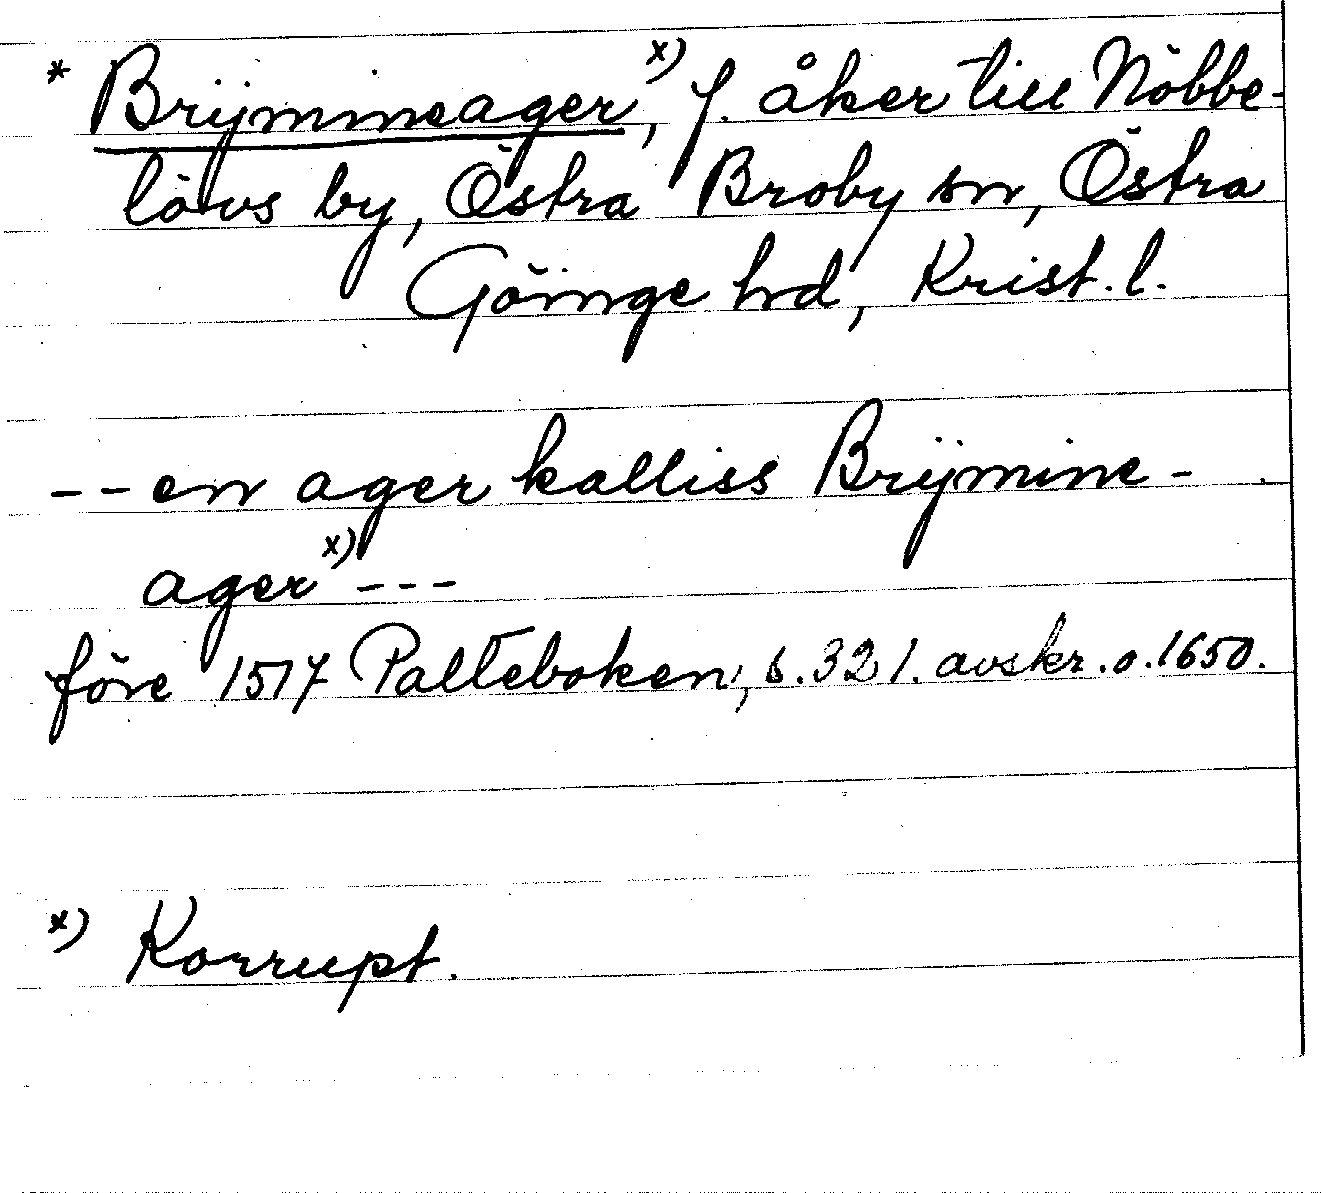 * Brijmineager, x) f. åker till Nöbbe-
lövs by, Östra Broby sn, Östra
Göinge hd, Krist. l.
-- en ager kalliss Brijmine-
ager x) ---
före 1517 Palteboken, s. 321. avskr. o. 1650.
x) Korrupt.